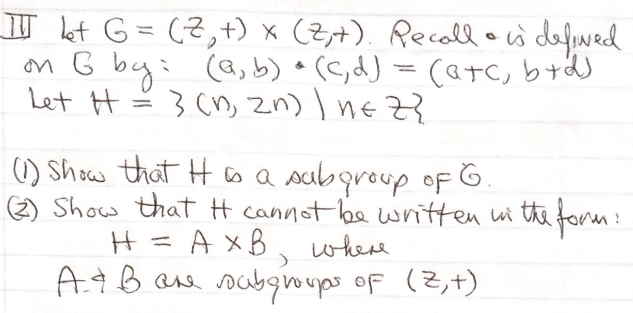 IV let G = (Z,+) × (Z,+). Recall • is defined
on G by: (a,b) • (c,d) = (a+c, b+d)
Let H = {(n, 2n) | n ∈ Z}
(1) Show that H is a subgroup of G.
(2) Show that H cannot be written in the form:
H = A × B, where
A & B are subgroups of (Z,+)